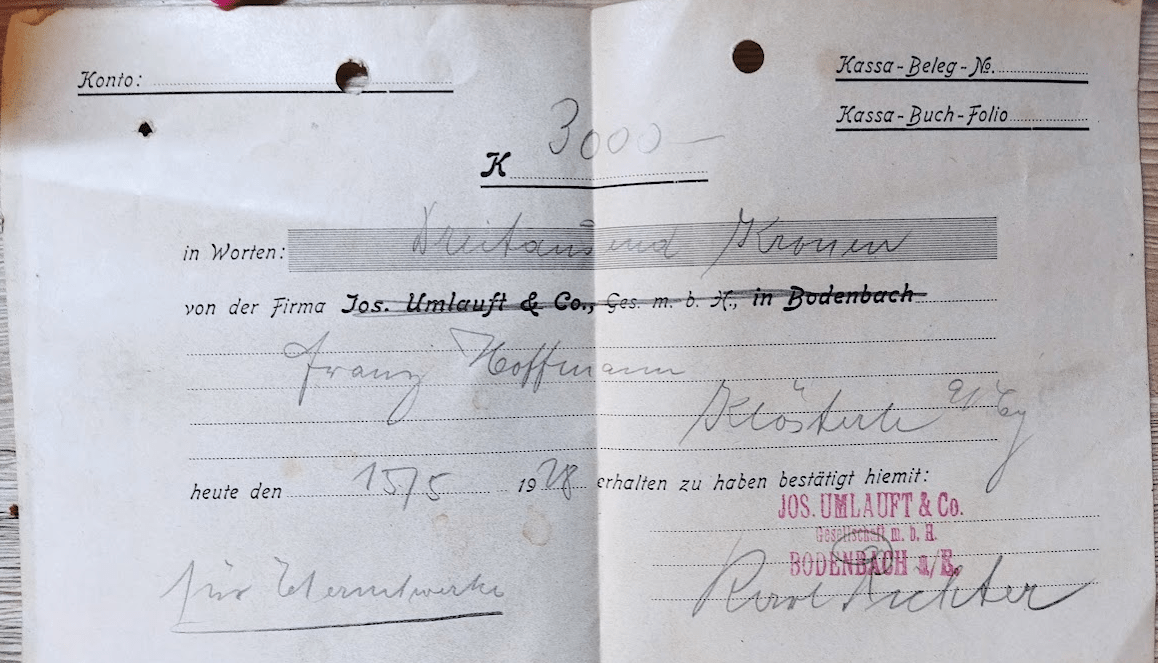 Konto:
Kassa-Beleg-No.
Kassa-Buch-Folio
K 3000 —
in Worten: Dreitausend Kronen
von der Firma Jos. Umlauft & Co., Ges. m. b. H., in Bodenbach
Franz Hoffmann
Klösterle a/Eg
heute den 15/5 1928 erhalten zu haben bestätigt hiemit:
JOS. UMLAUFT & Co.
Gesellschaft m. b. H.
BODENBACH a/E.
für Eternitwerke
Richter